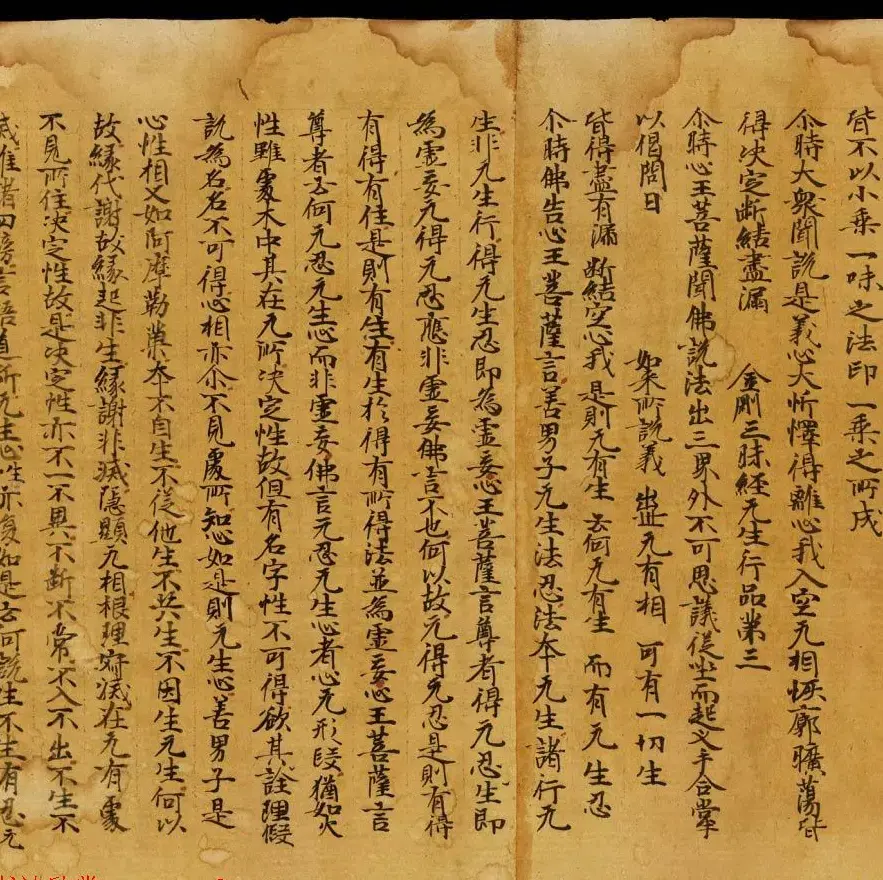 皆不以小乘一味之法印一乘之所成
尒時大衆聞說是義心大忻懌得離心我入空无相恢廓曠蕩皆
得决定断結盡漏　金剛三昧經无生行品第三
尒時心王菩薩聞佛說法出三界外不可思議從坐而起叉手合掌
以偈問曰　如来所說義　出世无有相　可有一切生
皆得盡有漏　断結空心我　是則无有生　云何无有生　而有无生忍
尒時佛告心王菩薩言善男子无生法忍法本无生諸行无
生非无生行得无生忍即為虛妄心王菩薩言尊者得无忍生即
為虛妄无得无忍應非虛妄佛言不也何以故无得无忍是則有得
有得有住是則有生有生於得有所得法並為虛妄心王菩薩言
尊者云何无忍无生心而非虛妄佛言无忍无生心者心无形段猶如火
性雖處木中其在无所决定性故但有名字性不可得欲其詮理假
說為名名不可得心相亦尒不見處所知心如是則无生心善男子是
心性相又如阿摩勒菓本不自生不從他生不共生不因生无生何以
故緣代謝故緣起非生緣謝非滅隱顯无相根理寂滅在无有處
不見所住决定性故是决定性亦不一不異不断不常不入不出不生不
滅離諸四謗言語道断无生心性亦復如是云何說生不生有忍无